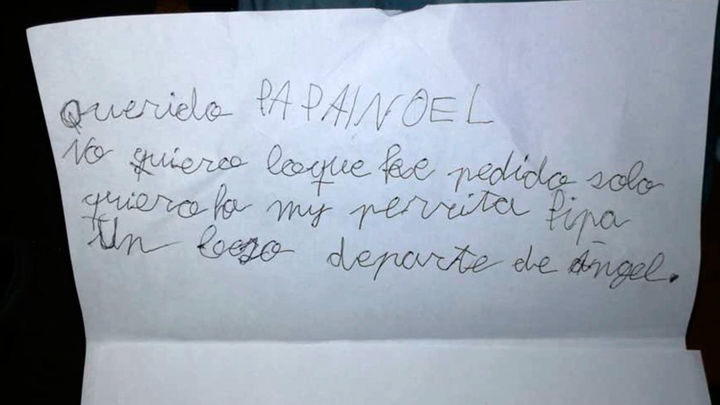 Querido PAPAINOEL
No quiero loque he pedido solo
quiero ha my perrita Pipa
Un beso departe de Ángel.